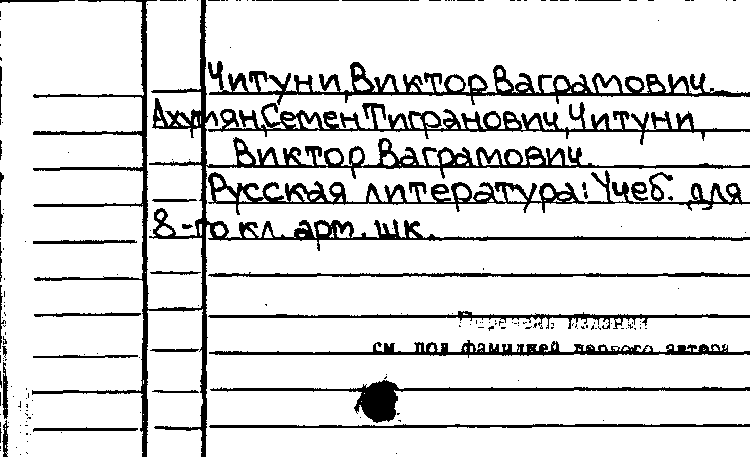 Читуни, Виктор Ваграмович.
Ахумян, Семен Тигранович, Читуни,
Виктор Ваграмович.
Русская литература: Учеб. для
8-го кл. арм. шк.
Перечень издания
см. под фамилией первого автора